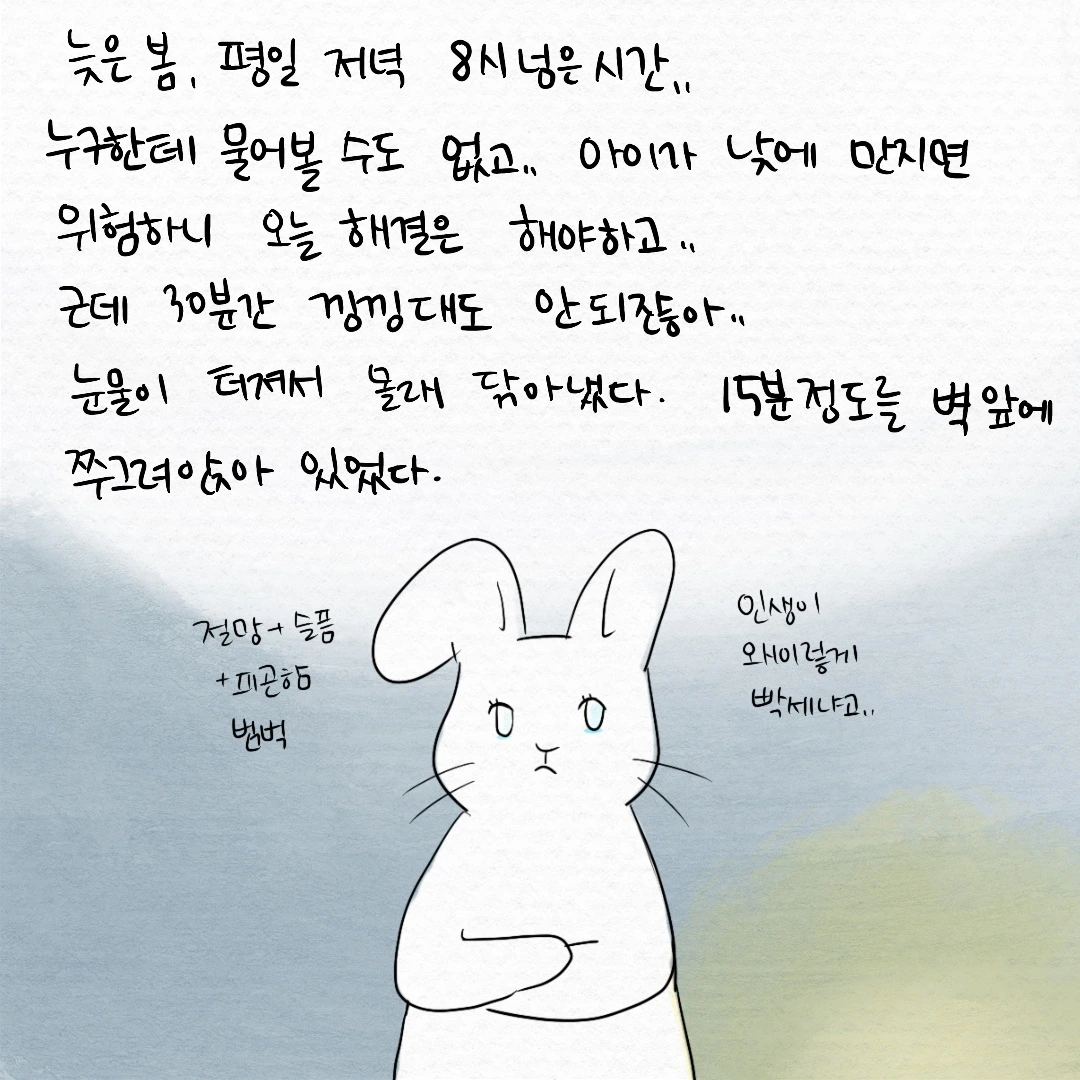 늦은 봄, 평일 저녁 8시 넘은 시간,,
누구한테 물어볼 수도 없고,, 아이가 낮에 만지면
위험하니 오늘 해결은 해야하고,,
근데 30분간 낑낑대도 안되잖아,,
눈물이 터져서 몰래 닦아냈다. 15분정도를 벽 앞에
쭈그려앉아 있었다.
절망+슬픔
+피곤함
범벅
인생이
왜이렇게
빡세냐고,,